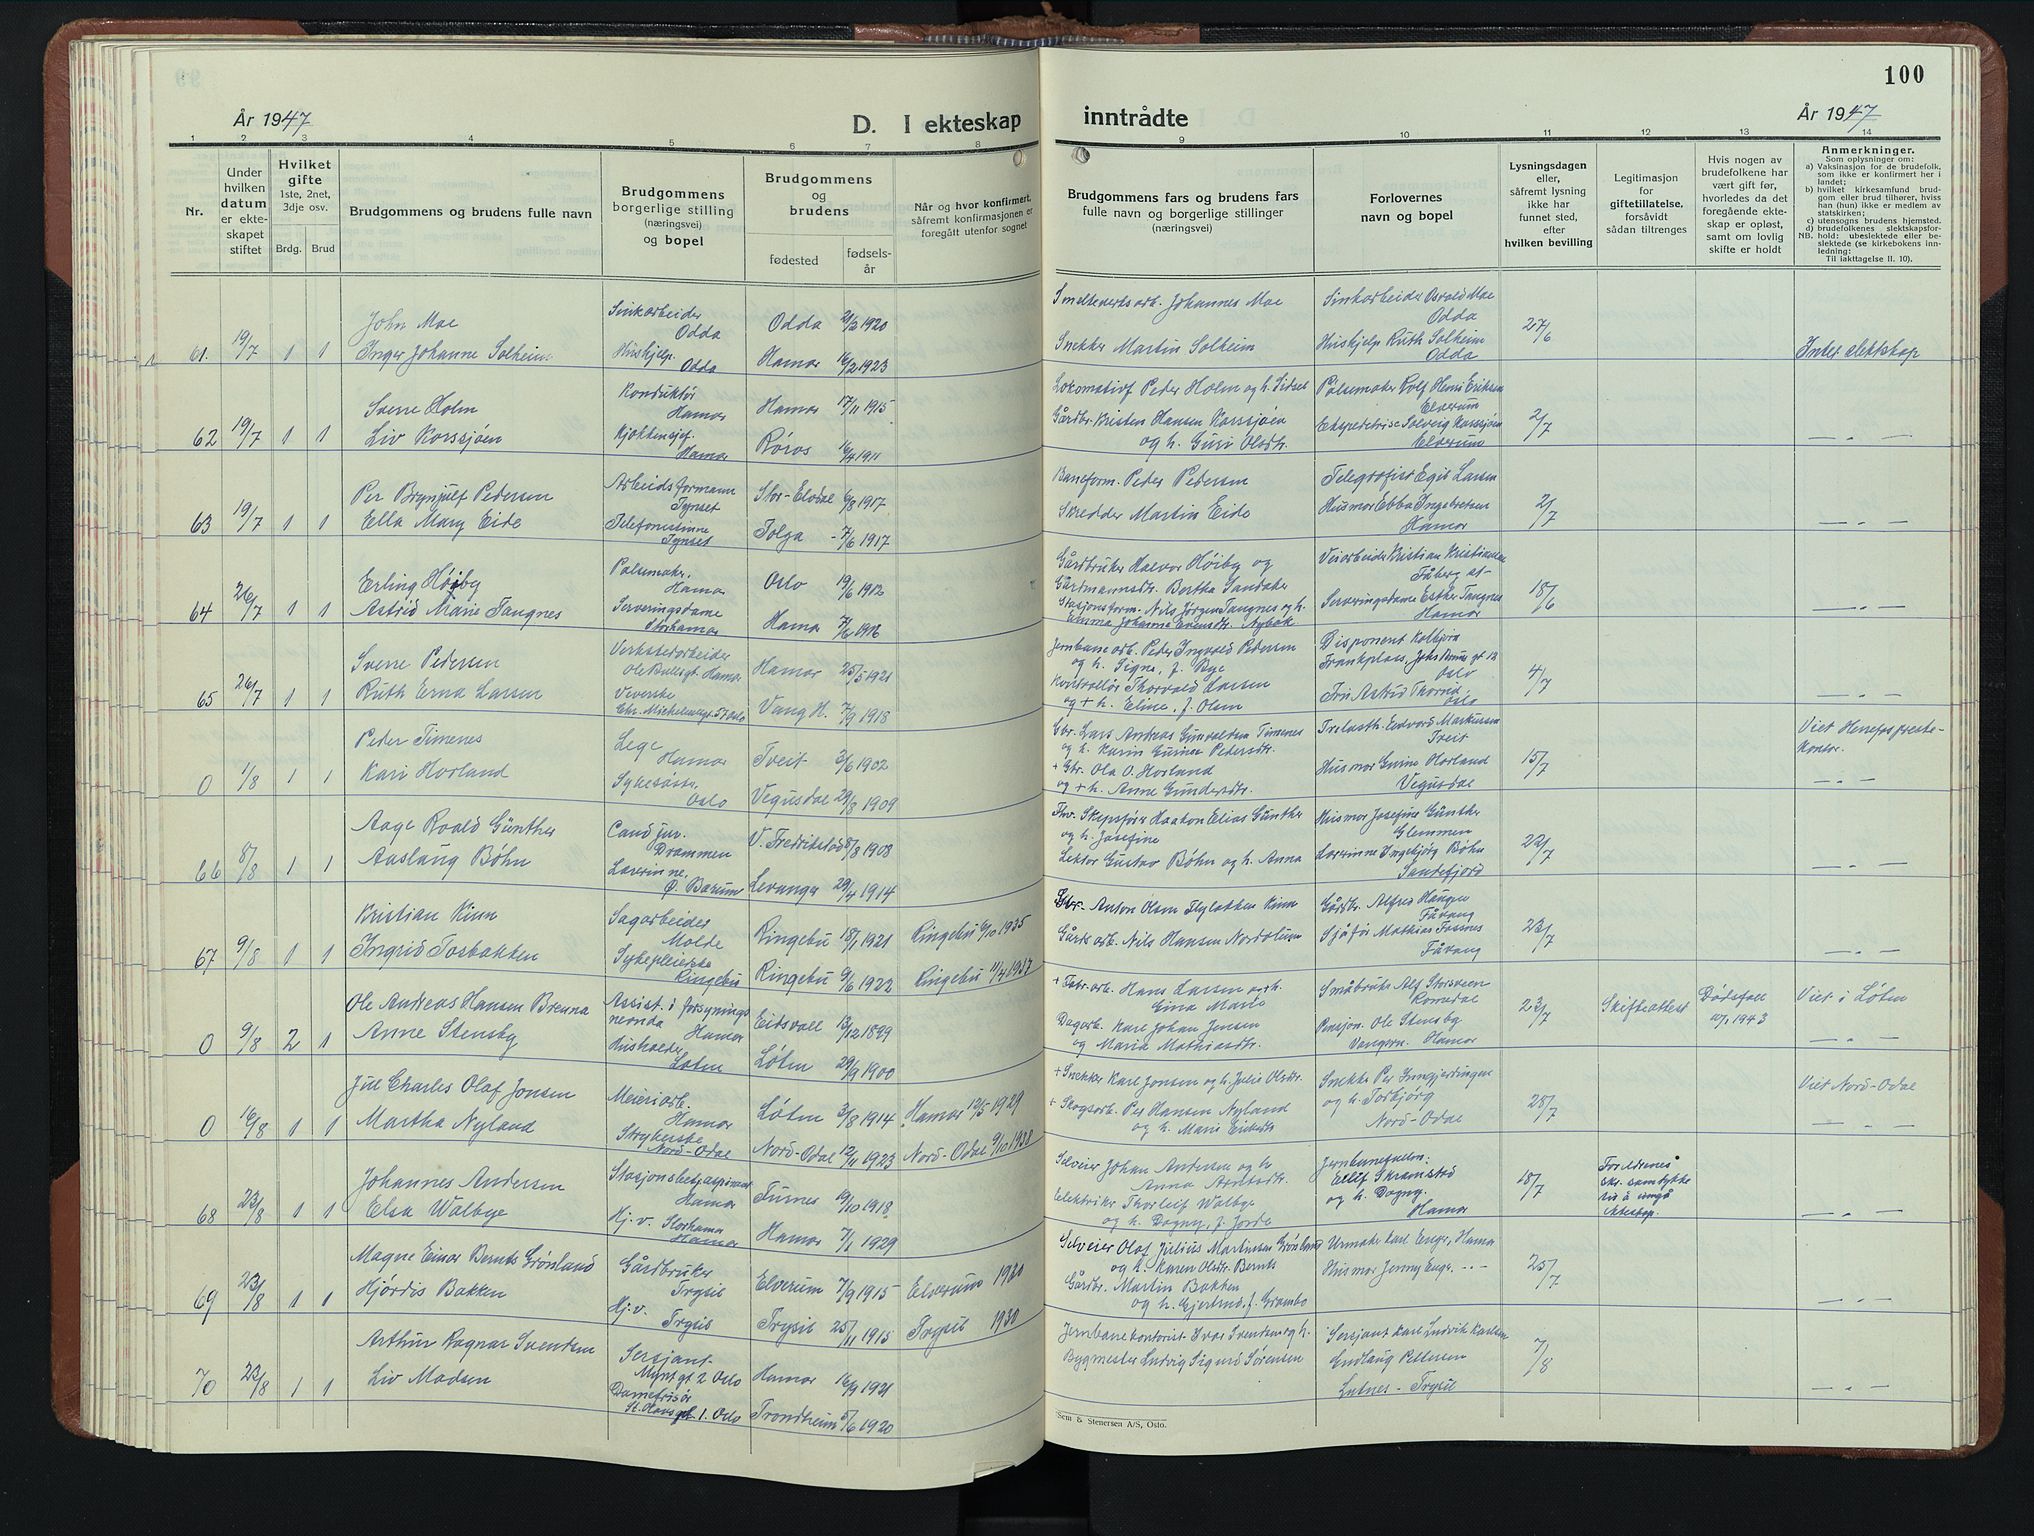 År 1947
D. I ekteskap
1 2 3 4 5 6 7 8
Nr.
Under hvilken datum er ekteskapet stiftet
Hvilket gifte
1ste, 2net, 3dje osv.
Brdg. Brud
Brudgommens og brudens fulle navn
Brudgommens borgerlige stilling (næringsvei) og bopel
Brudgommens og brudens
fødested
fødselsår
Når og hvor konfirmert, såfremt konfirmasjonen er foregått utenfor sognet
61. 19/7 1 1 John Moe
Inger Johanne Solheim
Odda
Hushjelp. Odda
Odda 21/2 1920
Hamar 16/2 1923
62 19/7 1 1 Sverre Holm
Liv Korssjøen
Konduktør Hamar
Kjøkkensjef. Hamar
Hamar 17/11 1915
Røros 16/4 1911
63 19/7 1 1 Per Brynjulf Pedersen
Ella Mary Eide
Arbeidsformann Tynset
Telefonistinne Tynset
Stor-Elvdal 6/8 1917
Tolga - 7/6 1917
64 26/7 1 1 Erling Høiby
Astrid Marie Tangnes
Pølsemaker. Hamar
Serveringsdame Storhamar
Oslo 19/6 1912
Hamar 7/6 1916
65 26/7 1 1 Sverre Pedersen
Ruth Erna Larsen
Verkstedarbeider
Ole Bullsgt. Hamar
Veverske
Chr. Michelsensgt. 57 Oslo
Hamar 25/5 1921
Vang H. 7/9 1918
0 1/8 1 1 Peder Timenes
Kari Horland
Lege Hamar
Oslo
Tveit 3/6 1902
Vegusdal 29/8 1909
66 8/8 1 1 Aage Roald Günther
Aaslaug Bøhn
Cand jur. Drammen
Lærerinne. Ø. Bærum
V. Fredrikstad 8/8 1908
Levanger 29/4 1914
67 9/8 1 1 Kristian Kinn
Ingrid Tosbakken
Sagarbeider Molde
Sykepleierske Ringebu
Ringebu 18/1 1921 Ringebu 6/10 1935
Ringebu 9/6 1922 Ringebu 11/4 1937
0 9/8 2 1 Ole Andreas Hansen Brenna
Anne Stensby
Assist. i forsynings
nemda Hamar
Husholder Løten
Eidsvoll 13/12 1899
Løten 29/9 1900
0 16/8 1 1 Jul Charles Olaf Jonsen
Martha Nyland
Meieriarb. Hamar
Strykerske Nord-Odal
Løten 3/8 1914 Hamar 12/5 1929
Nord-Odal 12/11 1923 Nord-Odal 9/10 1938
68 23/8 1 1 Johannes Andersen
Elsa Walbye
Stasjonsbetj.aspirant Hamar
Hj.v. Storhamar Hamar
Furnes 19/10 1918
Hamar 7/1 1929
69 23/8 1 1 Magne Einar Bernts Grønland
Hjørdis Bakken
Gårdbruker Trysil
Hj.v. Trysil
Elverum 7/9 1915 Elverum 1930
Trysil 25/11 1915 Trysil 1930
70 23/8 1 1 Arthur Ragnar Svendsen
Liv Madsen
Sersjant Myntgt 2 Oslo
Damefrisør
St. Olavsgt. 1. Oslo
Hamar 16/9 1921
Trondheim 5/6 1920
100
inntrådte
År 1947
9 10 11 12 13 14
Brudgommens fars og brudens fars fulle navn og borgerlige stillinger (næringsvei)
Forlovernes navn og bopel
Lysningsdagen eller, såfremt lysning ikke har funnet sted, efter hvilken bevilling
Legitimasjon for giftetillatelse, forsåvidt sådan tiltrenges
Hvis nogen av brudefolkene har vært gift før, hvorledes da det foregående ekteskap er opløst, samt om lovlig skifte er holdt
Anmerkninger.
Som oplysninger om:
a) Vaksinasjon for de brudefolk, som ikke er konfirmert her i landet;
b) hvilket kirkesamfund brudgom eller brud tilhører, hviss han (hun) ikke er medlem av statskirken;
c) utensogns brudens hjemsted.
d) brudefolkenes slektskapsforhold:
NB. ubeslektede eller beslektede (se kirkebokens innledning; Til iakttagelse II. 10).
Smelteverksarb. Johannes Moe
Snekker Martin Solheim
Sinkarbeider Osvald Moe
Odda
Hushjelp Ruth Solheim
Odda
27/6
Intet slektskap
Lokomotivf Peder Holm og h. Sidsel
Gårdbr. Kristen Hansen Korssjøen
og h. Guri Olsdtr.
Pølsemaker Rolf Henri Eriksen
Elverum
Ekspeditrise Solveig Korssjøen
Elverum
2/7
— " —
Baneform. Peder Pedersen
Skredder Martin Eide
Telegrafist Egil Larsen
Husmor Ebba Ingebretsen
Hamar
2/7
— " —
Gårdbruker Halvor Høiby og
Gårdmannsdtr. Bertha Sandaker
Stasjonsform. Nils Jørgen Tangnes og h.
Emma Johanna Evensdtr. Nybak
Veiarbeider Kristian Kristiansen
Fåberg st-
Serveringsdame Esther Tangnes
Hamar
18/6
— " —
Jernbanearb. Peder Ingvald Pedersen
og h. Signe, f. Bye
Kontrollør Thorvald Larsen
og + h. Eline, f. Olsen
Disponent Kolbjørn
Oslo
Fru Astrid
Oslo
4/7
— " —
Gbr. Lars Andreas Gunvaldsen Timenes
og h. Karin Gurine Pedersdtr.
+ Gbr. Ola O. Horland
og + h. Anne Gundersdtr.
Trelasth. Edvard Markussen
Tveit
Husmor Gurine Horland
Vegusdal
15/7
— " —
Fhv. Skipsfører Haakon Elias Günther
og h. Josefine
Lektor Gustav Bøhn og h. Anna
Husmor Josefine Günther
Glemmen
Lærerinne Ingebjørg Bøhn
Sandefjord
22/7
— " —
Gbr. Anton Olsen Flyløkken Kinn
Gårdsarb. Nils Hansen Nordolum
Gårdbr. Alfred Haugen
Fåvang
Sjåfør Mathias Fosnes
Fåvang
23/7
— " —
+ Fabr.arb. Hans Larsen og h.
Gina Marie
Dagarb. Karl Johan Jensen
og Maria Mathiasdtr.
Småbruker Alf Storsveen
Romedal
Pensjon. Ole Stensby
Hamar
23/7
Skifteattest
Dødsfall
1943
Viet i Løten
— " —
+ Snekker Karl Jonsen og h. Julie Olsdtr.
+ Skogsarb. Per Hansen Nyland
og h. Marie
Snekker Per Inngjerdingen
og h. Torbjørg
Nord-Odal
28/7
Viet Nord-Odal
— " —
Selveier Johan Andersen og h
Anna
Elektriker Thorleif Walbye
og h. Dagny, f. Jorde
Eilif Skramstad
og h. Dagny.
Hamar
18/7
Foreldrenes
skr. samtykke
til å inngå
ekteskap.
— " —
Selveier Olaf Julius Martinsen Grønland
og h. Karen Olsdtr. Bernts
Gårdbr. Martin Bakken
og h. Gjertrud, f. Grambo
Urmaker Karl Enger, Hamar
Husmor Jenny Enger - " -
25/7
— " —
Jernbanekontorist Ivar Svendsen og h.
Bygmester Ludvig Sigurd Sørensen
Sersjant Karl Ludvik Karlsen
Pettersen
Lutnes - Trysil
7/8
— " —
Sem & Stenersen A/S, Oslo.